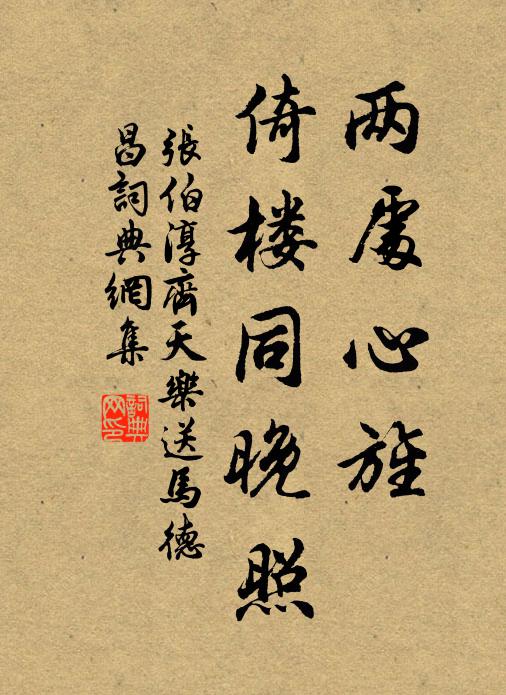 两處心旌
倚楼同晚照
張伯淳齊天樂送馬德
昌詞典網集
詞典
网印